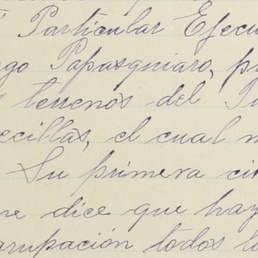 Particular Ejecu
go Papasquiaro, p
terrenos del P
ecillas, el cual m
Su primera ci
ne dice que hay
arupación todos lo